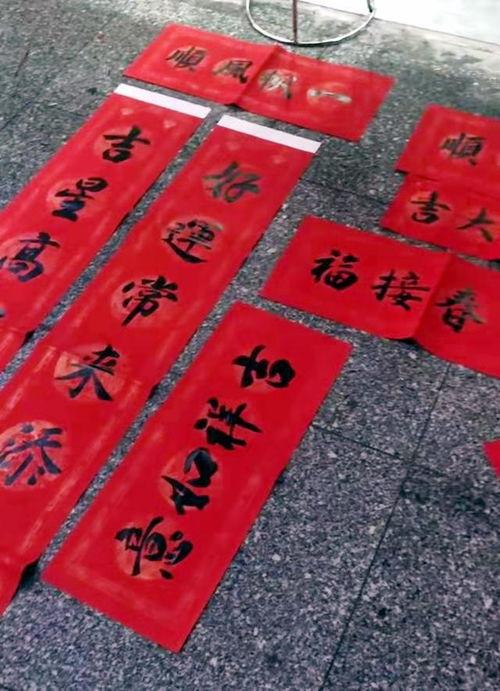 一帆風順
吉星高
好運常來添
吉祥如意
順
大吉
春接福